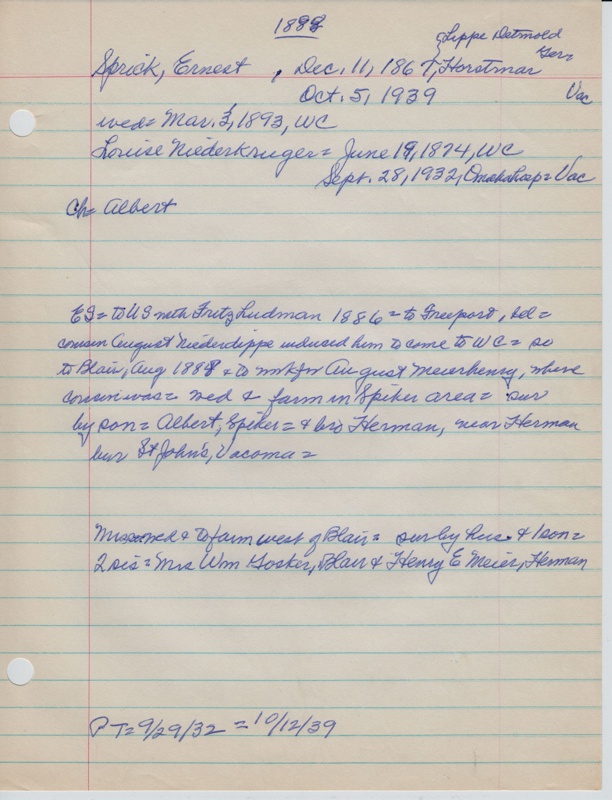 1888
Sprick, Ernest, Dec. 11, 1867, Horstmar {Lippe Detmold Ger=
Oct. 5, 1939 Vac
wed= Mar. 3, 1893, WC
Louise Niederkruger= June 19, 1874, WC
Sept. 28, 1932, Omaha hosp= Vac
Ch= Albert
ES= to US with Fritz Ludman 1886= to Freeport, Ill=
cousin August Niederdeppe induced him to come to WC= so
to Blair, Aug 1888 & to wrk for August Meierhenry, where
cousin was= wed & farm in Spiker area= sur
by son= Albert, Spiker= & bro Herman, near Herman
bur St John's, Vacoma=
Mrs= wed & to farm west of Blair= sur by hus. & 1 son=
2 sis= Mrs Wm Gosker, Blair & Henry E Meier, Herman
PT= 9/29/32 = 10/12/39